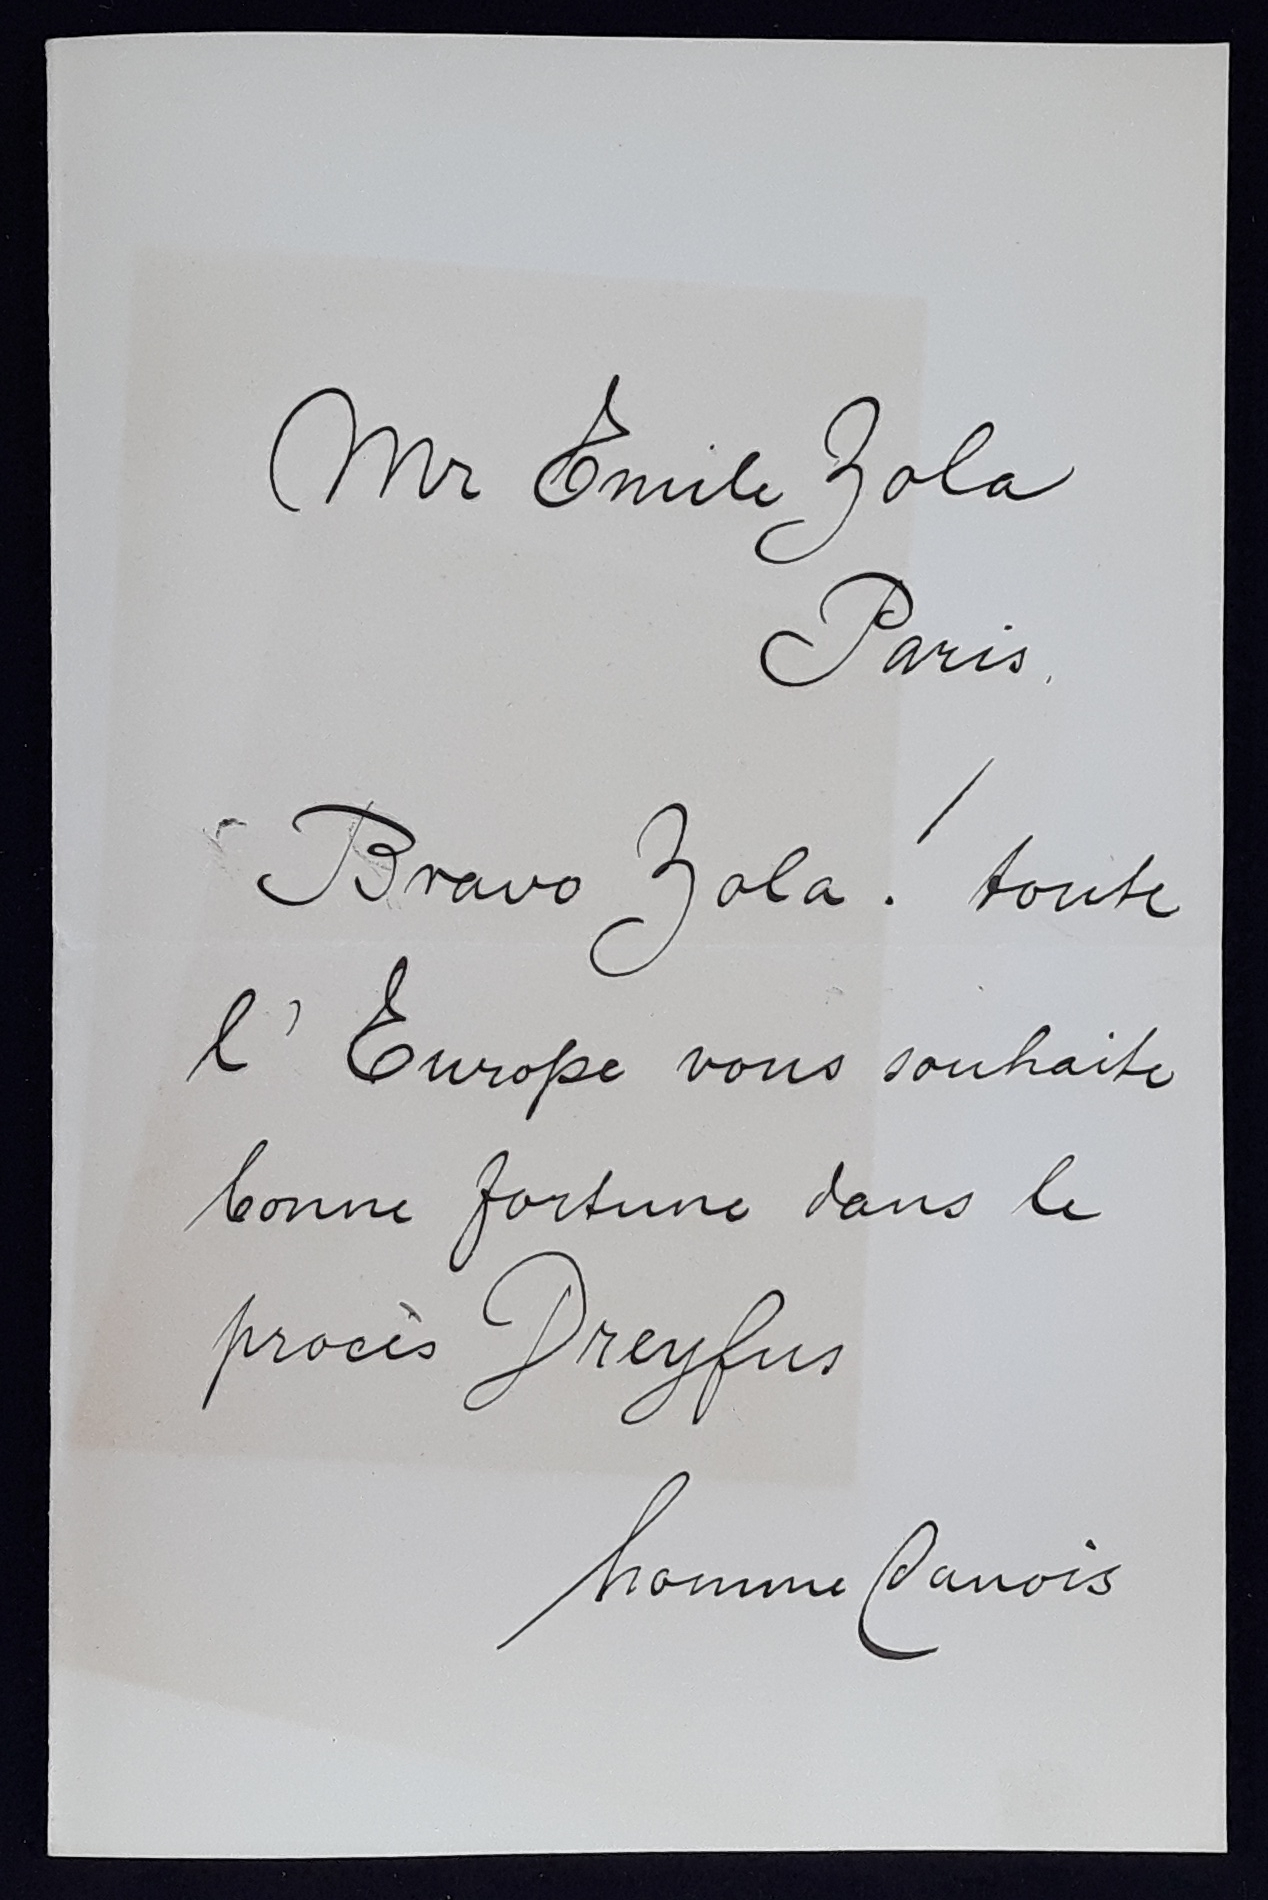 Mr Emile Zola
Paris.
Bravo Zola! toute
l'Europe vous souhaite
bonne fortune dans le
procès Dreyfus
homme Danois